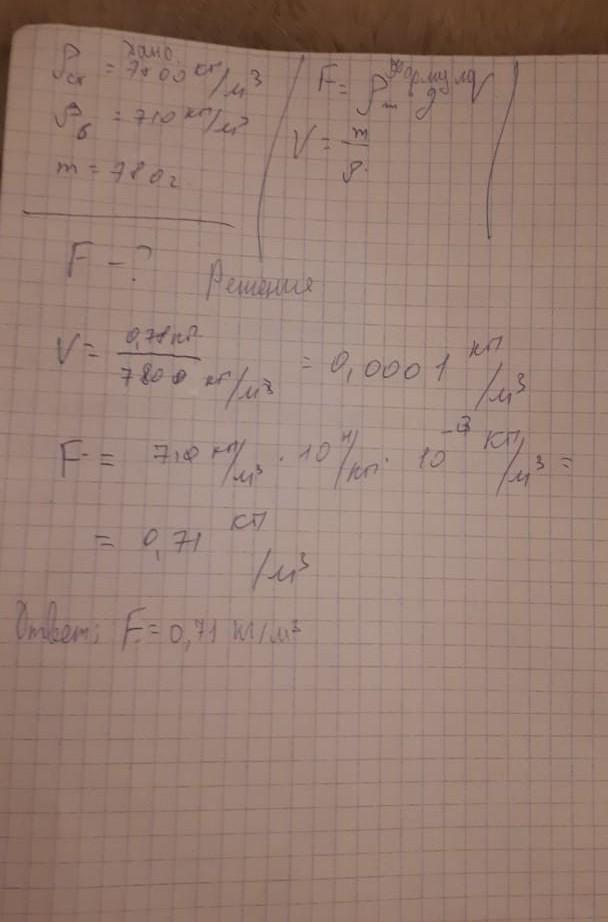 Дано:
ρст = 7800 кг/м³
ρб = 710 кг/м³
m = 780 г
Формула
F = ρm g V
V = m/ρ
F - ?
Решения
V = 0,78 кг / 7800 кг/м³ = 0,0001 кг/м³
F = 710 кг/м³ · 10 н/кг · 10⁻³ кг/м³ =
= 0,71 кг/м³
Ответ: F = 0,71 кг/м³